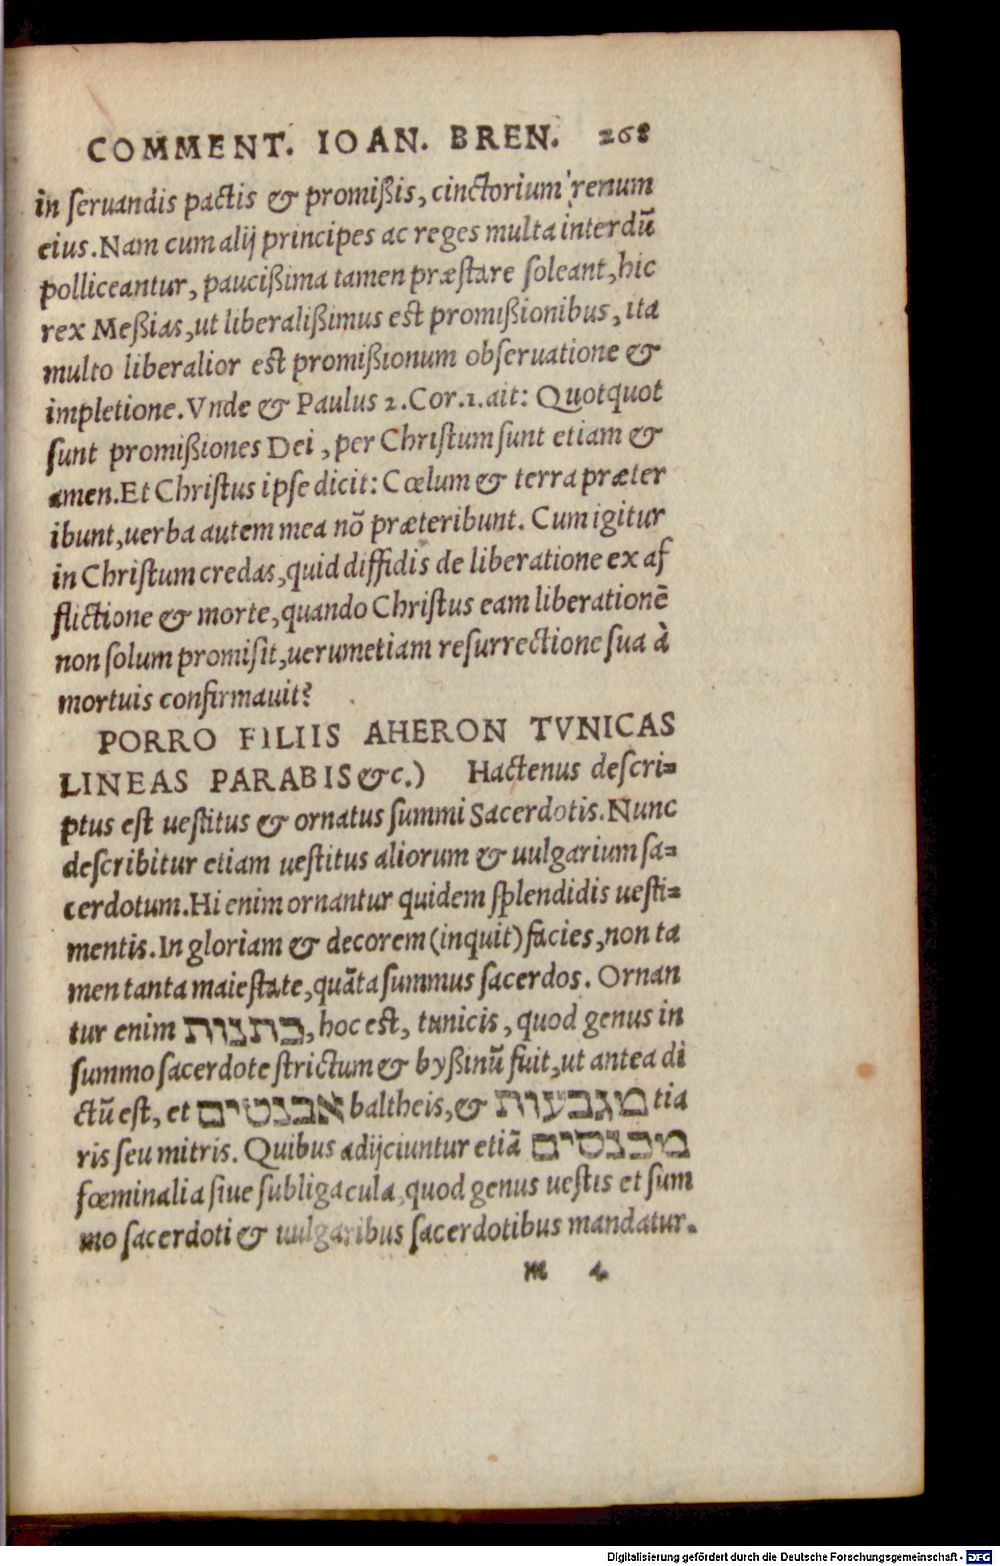 COMMENT. IOAN. BREN. 268
in ſeruandis pactis & promißis, cinctorium renum
eius. Nam cum alij principes ac reges multa interdū
polliceantur, paucißima tamen præſtare ſoleant, hic
rex Meßias, ut liberalißimus est promißionibus, ita
multo liberalior est promißionum obſeruatione &
impletione. Vnde & Paulus 2. Cor. 1. ait: Quotquot
ſunt promißiones Dei, per Chriſtum ſunt etiam &
amen. Et Chriſtus ipſe dicit: Cœlum & terra præter
ibunt, uerba autem mea nō præteribunt. Cum igitur
in Chriſtum credas, quid diffidis de liberatione ex af
flictione & morte, quando Chriſtus eam liberationē
non ſolum promiſit, uerumetiam reſurrectione ſua à
mortuis confirmauit?
PORRO FILIIS AHERON TVNICAS
LINEAS PARABIS &c.) Hactenus deſcri=
ptus est ueſtitus & ornatus ſummi Sacerdotis. Nunc
deſcribitur etiam ueſtitus aliorum & uulgarium ſa=
cerdotum. Hi enim ornantur quidem ſplendidis ueſti=
mentis. In gloriam & decorem (inquit) facies, non ta
men tanta maieſtate, quāta ſummus ſacerdos. Ornan
tur enim כתנות, hoc est, tunicis, quod genus in
ſummo ſacerdote ſtrictum & byßinū fuit, ut antea di
ctū est, et אבנטים baltheis, & מגבעות tia
ris ſeu mitris. Quibus adijciuntur etiā מכנסים
fœminalia ſiue ſubligacula, quod genus ueſtis et ſum
mo ſacerdoti & uulgaribus ſacerdotibus mandatur.
m 4
Digitalisierung gefördert durch die Deutsche Forschungsgemeinschaft - DFG